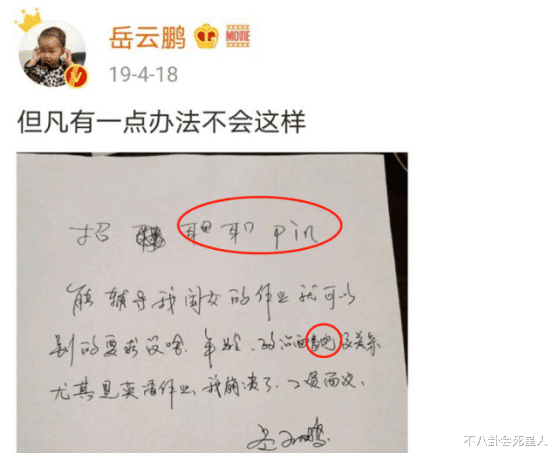 岳云鹏 MOVIE
19-4-18
但凡有一点办法不会这样
招 pin
能辅导我闺女的作业就可以
别的要求没啥.年龄、政治面 没关系
尤其是英语作业,我崩溃了.工资面议.
岳云鹏
不八卦会死星人